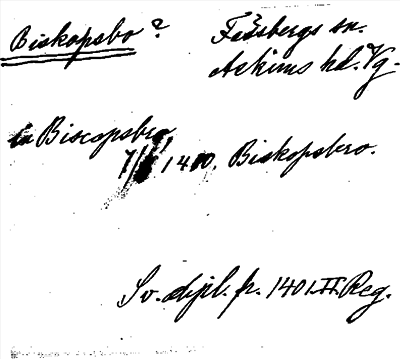 Biskopsbo? Fässbergs sn.
Askims hd. Vg.
in Biscopsbro,
7/ 1410. Biskopsbro.
Sv. dipl. fr. 1401. II. Reg.